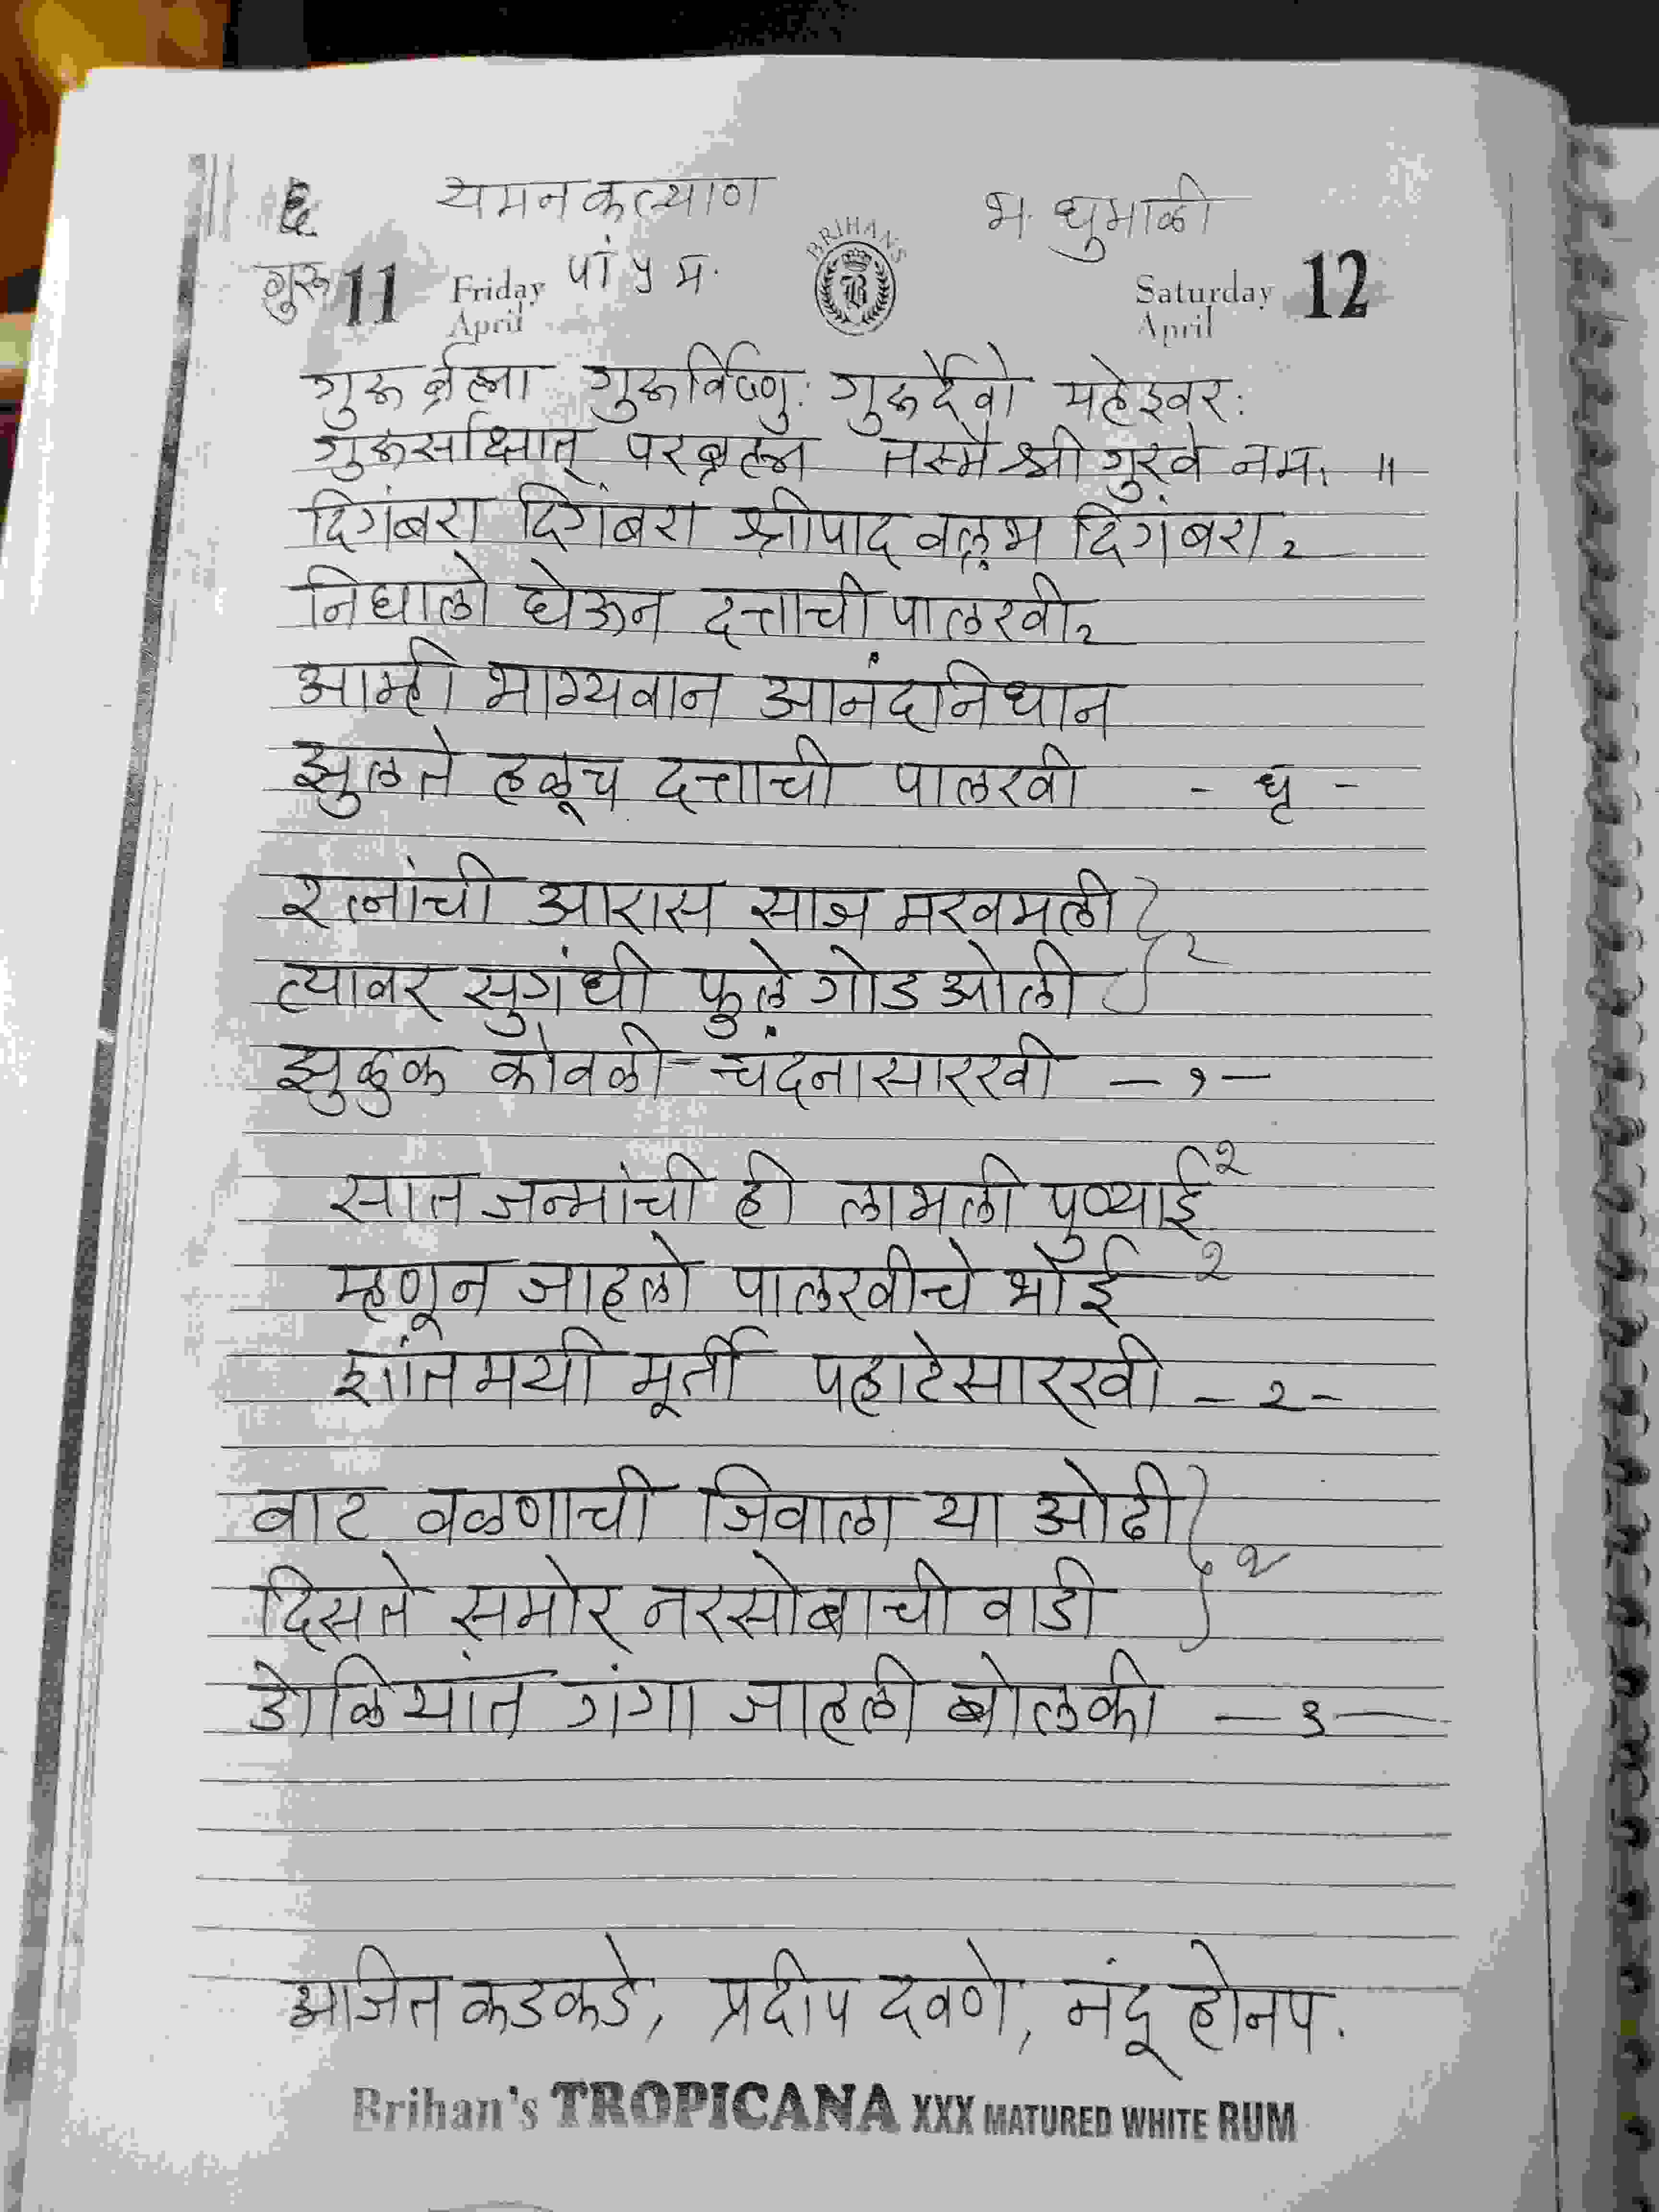 ६ यमनकल्याण भ. धुमाळी
BRIHAN'S
B
गुरू 11 Friday पां ५ म. Saturday 12
April April
गुरूर्ब्रह्मा गुरूर्विष्णुः गुरूर्देवो महेश्वरः
गुरूर्साक्षात् परब्रह्म तस्मै श्री गुरवे नमः ॥
दिगंबरा दिगंबरा श्रीपाद वल्लभ दिगंबरा २
निघालो घेऊन दत्ताची पालखी २
आम्ही भाग्यवान आनंदनिधान
झुलते हळूच दत्ताची पालखी - धृ -
रत्नांची आरास साज मखमली
त्यावर सुगंधी फुले गोड ओली २
झुळुक कोवळी चंदनासारखी - १ -
सात जन्मांची ही लाभली पुण्याई २
म्हणून जाहलो पालखीचे भोई २
शांतमयी मूर्ती पहाटेसारखी - २ -
वाट वळणाची जिवाला या ओढी
दिसते समोर नरसोबाची वाडी २
डोळियांत गंगा जाहली बोलकी - ३ -
अजित कडकडे, प्रदीप दवणे, नंदू होनप.
Brihan's TROPICANA XXX MATURED WHITE RUM